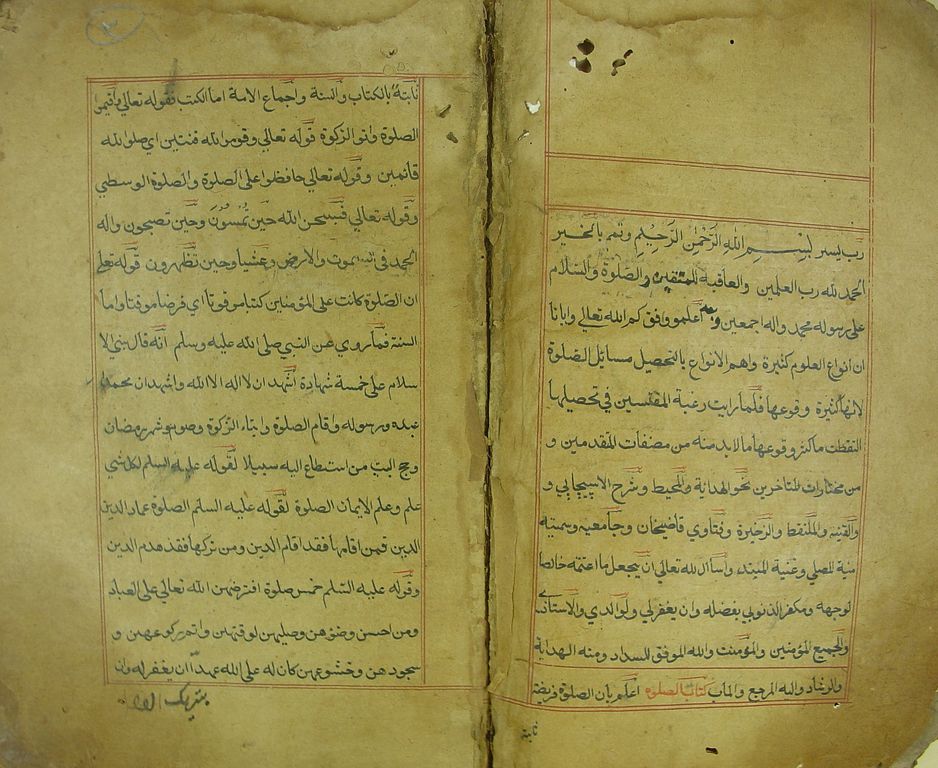 رب يسر بسم الله الرحمن الرحيم وتمم بالخير
الحمد لله رب العلمين والعاقبة للمتقين والصلوة والسلام
على رسوله محمد واله اجمعين وبعد اعلموا وفق كم الله تعالى وايانا
ان انواع العلوم كثيرة واهم الانواع بالتحصيل مسائل الصلوة
لانها كثيرة وقوعها فلما رايت رغبة المقتبسين في تحصيلها
التقطت ما كثر وقوعها ما لابد منه من مصنفات المتقدمين و
من مختارات المتاخرين نحو الهداية والمحيط وشرح الاسبيجابي و
والقنية والملتقط والذخيرة وفتاوي قاضيخان وجامعيه وسميته
منية المصلي وغنية المبتدي واسأل الله تعالى ان يجعل ما اعتمته خالصا
لوجهه ومكفر الذنوبي بفضله وان يغفر لي ولوالدي والاستاذي
والجميع المؤمنين والمؤمنت والله الموفق للسداد ومنه الهداية
والرشاد واليه المرجع والماب كتاب الصلوة اعلم بان الصلوة فريضة
ثابتة
ثابتة بالكتاب والسنة واجماع الامة اما الكتب فقوله تعالى واقيموا
الصلوة واتوا الزكوة قوله تعالى وقوموا لله قنتين اي صلوا لله
قائمين وقوله تعالى حافظوا على الصلوة والصلوة الوسطى
وقوله تعالى فسبحن الله حين تمسون وحين تصبحون وله
الحمد في السموت والارض وعشيا وحين تظهرون قوله تعلى
ان الصلوة كانت على المؤمنين كتبا موقوتا اي فرضا موقتا واما
السنة فما روي عن النبي صلى الله عليه وسلم انه قال بني الا
سلام على خمسة شهادة اشهد ان لا اله الا الله واشهد ان محمدا
عبده ورسوله واقام الصلوة وايتاء الزكوة وصوم شهر رمضان
وحج البيت من استطاع اليه سبيلا لقوله عليه السلم لكل شي
علم وعلم الايمان الصلوة لقوله عليه السلم الصلوة عماد الدين
الدين فمن اقامها فقد اقام الدين ومن تركها فقد هدم الدين
وقوله عليه السلم خمس صلوة افترضهن الله تعالى على العباد
ومن احسن وضوهن وصليهن لوقتهن واتم ركوعهن و
سجودهن وخشوعهن كان له على الله عهدا ان يغفر له وان